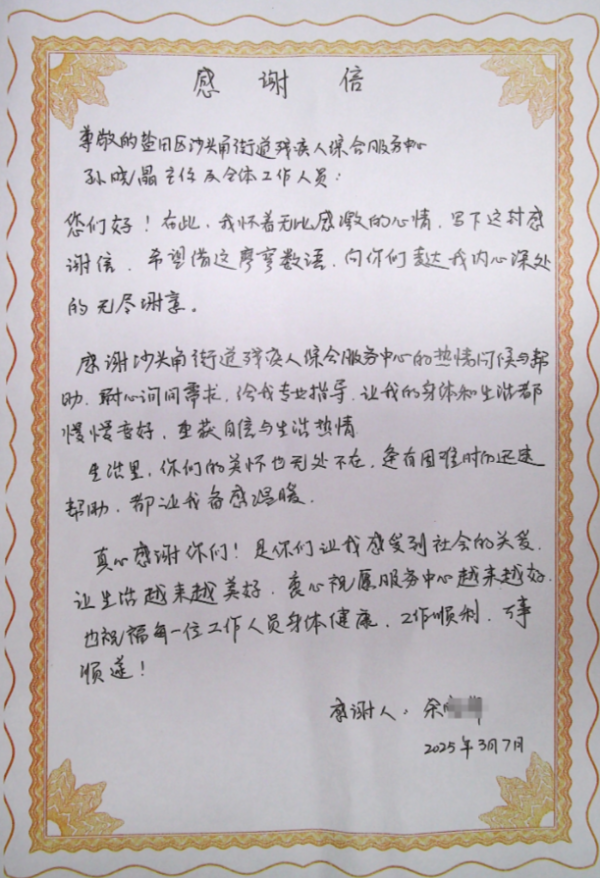 感谢信
尊敬的盐田区沙头角街道残疾人综合服务中心
孙晓晶主任及全体工作人员：
您们好！在此，我怀着无比感激的心情，写下这封感
谢信，希望借这廖寥数语，向你们表达我内心深处
的无尽谢意。
感谢沙头角街道残疾人综合服务中心的热情问候与帮
助，耐心询问需求，给我专业指导，让我的身体和生活都
慢慢变好，重获自信与生活热情
生活里，你们的关怀也无处不在，逢有困难时的迅速
帮助，都让我备感温暖，
真心感谢你们！是你们让我感受到社会的关爱，
让生活越来越美好，衷心祝愿服务中心越来越好，
也祝福每一位工作人员身体健康，工作顺利，万事
顺遂！
感谢人：余
2025年3月7日